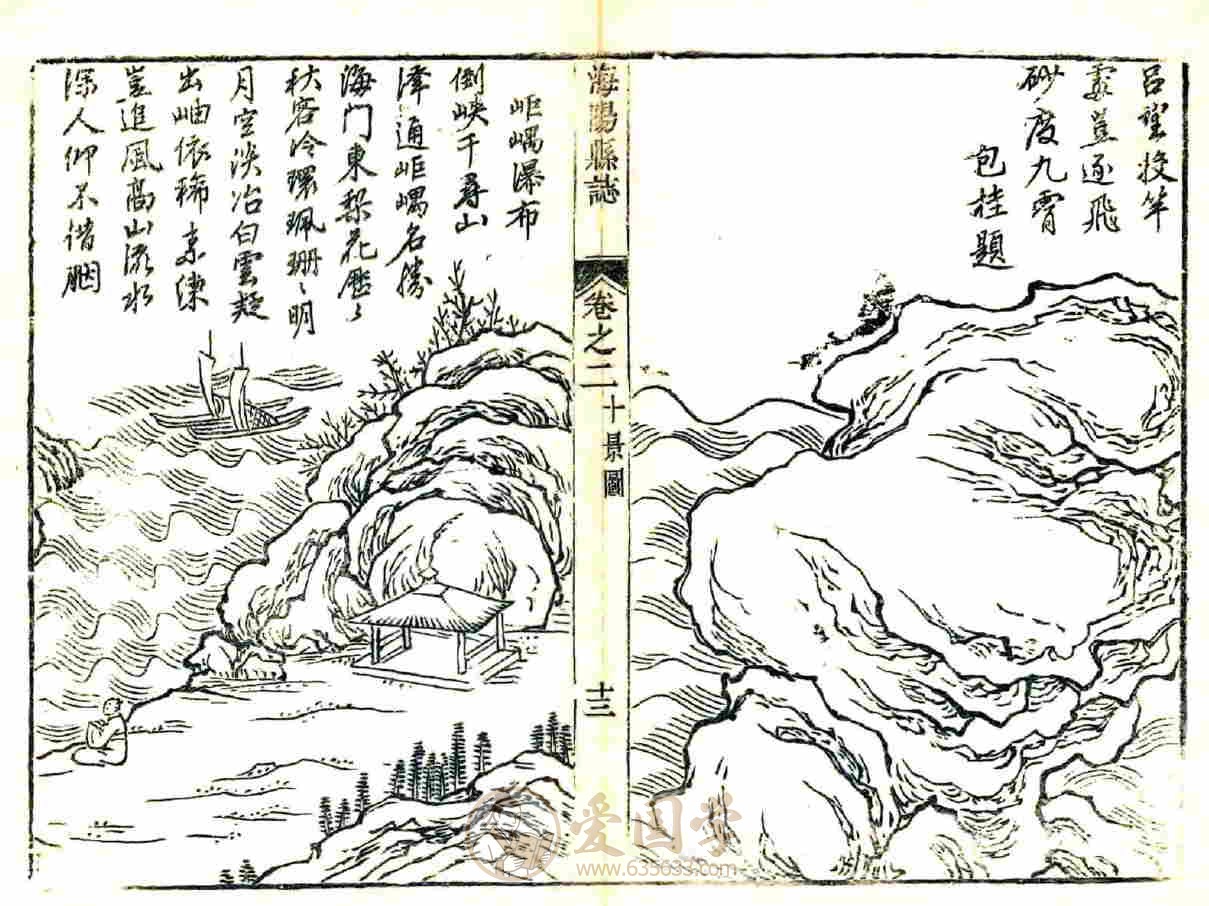 呂望投竿
豈逐飛
砂度九霄
包桂題
海陽縣誌
卷之二
十景圖
十三
岠嵎瀑布
倒峽千尋山
澤通岠嵎名勝
海門東梨花歷〻
秋容冷環珮珊〻明
月空淡冶白雲凝
出岫依稀素練
豈追風高山流水
深人仰不借胭
爱国学
www.635633.com